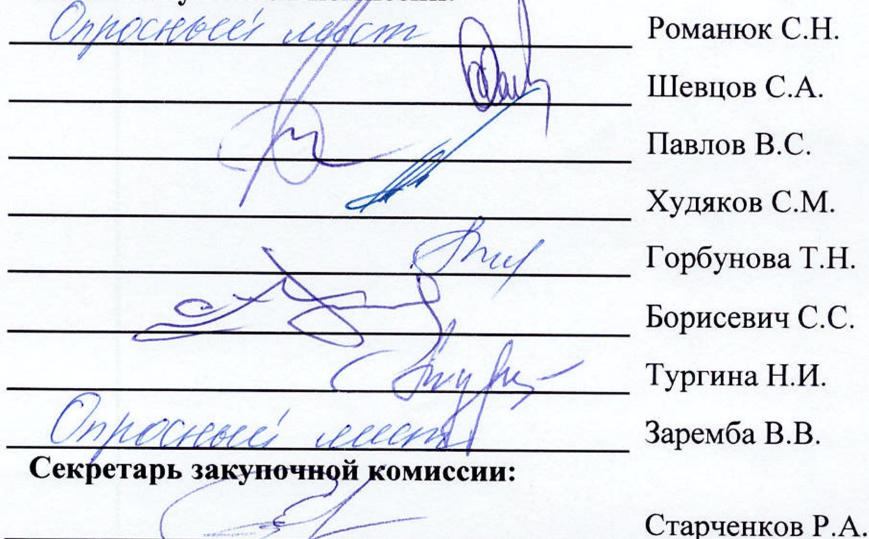 Опросный лист Романюк С.Н.
Шевцов С.А.
Павлов В.С.
Худяков С.М.
Горбунова Т.Н.
Борисевич С.С.
Тургина Н.И.
Опросный лист Заремба В.В.
Секретарь закупочной комиссии:
Старченков Р.А.